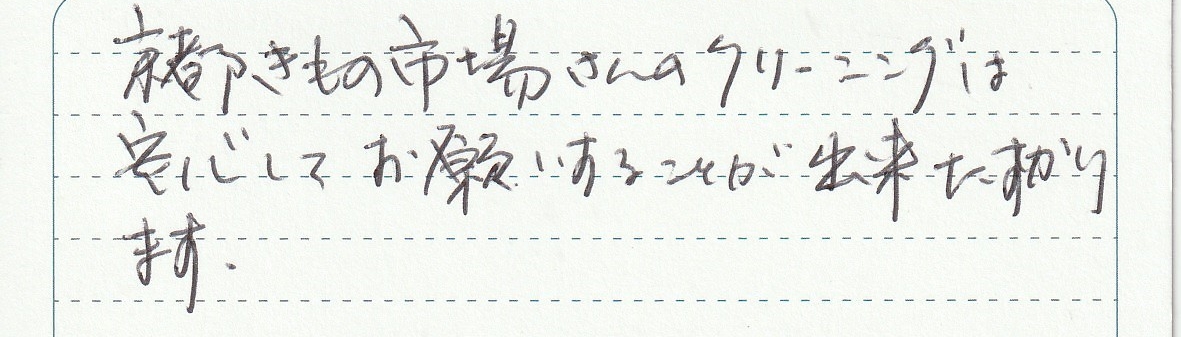 京都きもの市場さんのクリーニングは
安心してお願いすることが出来たすかり
ます.